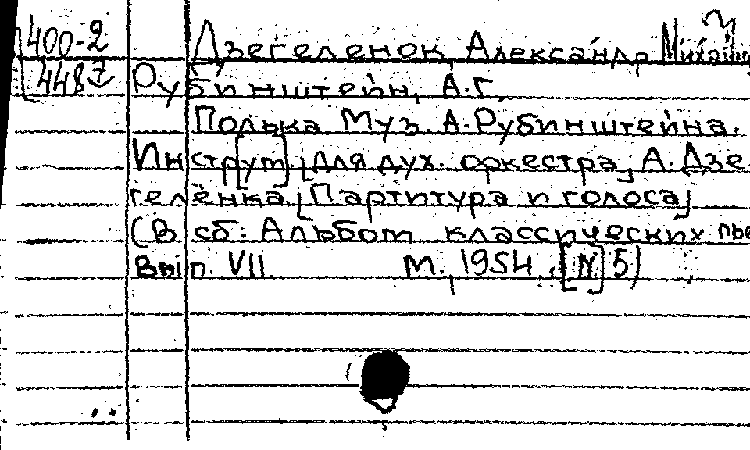 400-2 Дзегеленок, Александр Михайл
4487 Рубинштейн, А.Г.
Полька Муз. А. Рубинштейна.
Инстру[m] [для дух. оркестра] А. Дзе
геленка [Партитура и голоса]
(В сб: Альбом классических пье
Вып. VII. М., 1954, [N] 5)